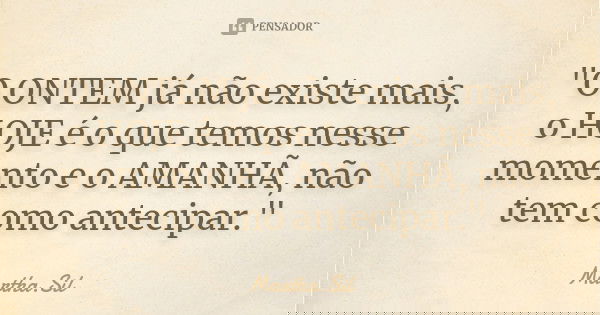 PENSADOR
"O ONTEM já não existe mais,
o HOJE é o que temos nesse
momento e o AMANHÃ, não
tem como antecipar."
Martha.Sil